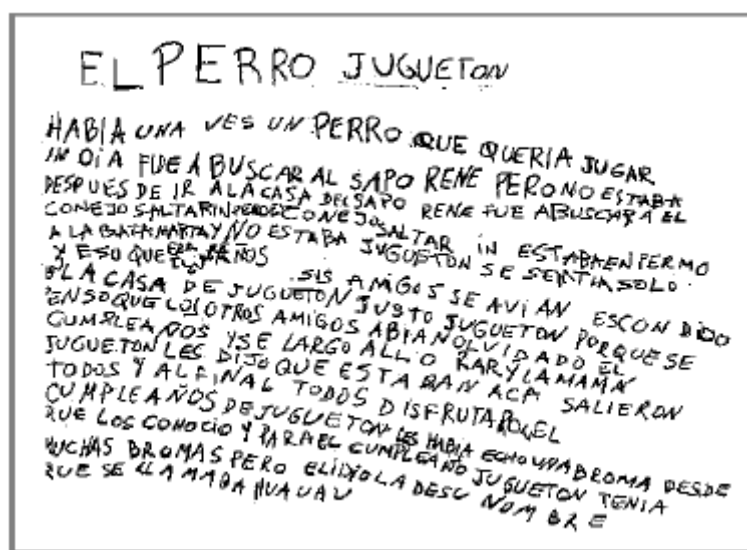 EL PERRO JUGUETON
HABIA UNA VES UN PERRO QUE QUERIA JUGAR
UN DIA FUE A BUSCAR AL SAPO RENE PERO NO ESTABA
DESPUES DE IR A LA CASA DEL SAPO RENE FUE A BUSCAR A EL
CONEJO SALTARIN CONEJO SALTAR IN ESTABA ENFERMO
A LA MARTA Y NO ESTABA JUGUETON SE SENTIA SOLO.
Y ESO QUE ERA AÑOS
A LA CASA DE JUGUETON SUS AMIGOS SE AVIAN ESCONDIDO
ENSO QUE LOS OTROS AMIGOS ABIAN OLVIDADO EL
JUSTO JUGUETON PORQUE SE
CUMPLEAÑOS Y SE LARGO A LLORAR Y LA MAMA
JUGUETON LES DIJO QUE ESTABAN ACA SALIERON
TODOS Y AL FINAL TODOS DISFRUTARON EL
CUMPLEAÑOS DE JUGUETON LES HABIA ECHO UNA BROMA DESDE
QUE LOS CONOCIO Y PARA EL CUMPLEAÑO JUGUETON TENIA
MUCHAS BROMAS PERO ELIJIO LA DE SU NOMBRE
QUE SE LLAMABA HUAUAU